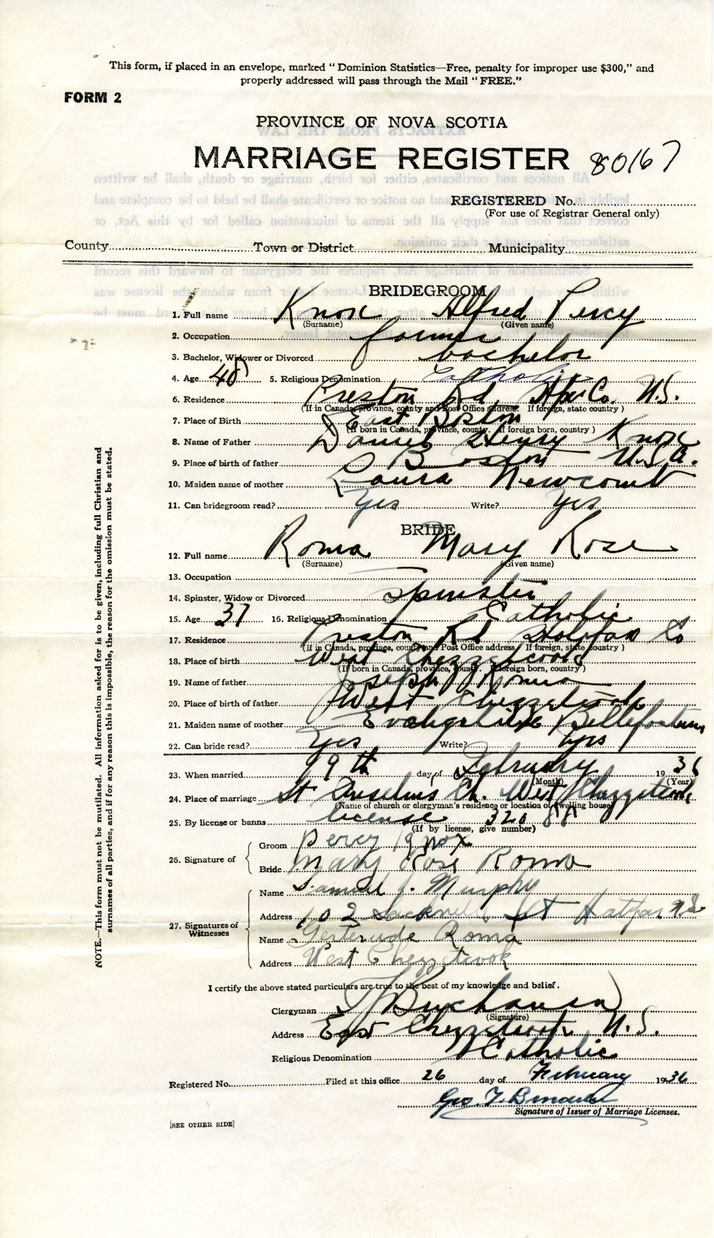 This form, if placed in an envelope, marked "Dominion Statistics—Free, penalty for improper use $300," and
properly addressed will pass through the Mail "FREE."
FORM 2
PROVINCE OF NOVA SCOTIA
MARRIAGE REGISTER 80167
REGISTERED No.
(For use of Registrar General only)
County Town or District Municipality
BRIDEGROOM
1. Full name Knox Alfred Percy
(Surname) (Given name)
2. Occupation farmer
3. Bachelor, Widower or Divorced bachelor
4. Age 48 5. Religious Denomination Catholic
6. Residence Preston Rd, Hfx Co. N.S.
(If in Canada, province, county and Post Office address. If foreign, state country)
7. Place of Birth East Boston
(If born in Canada, province, county. If foreign born, country)
8. Name of Father Daniel Henry Knox
9. Place of birth of father Boston U.S.A.
10. Maiden name of mother Laura Newcomb
11. Can bridegroom read? Yes Write? Yes
BRIDE
12. Full name Roma Mary Rose
(Surname) (Given name)
13. Occupation
14. Spinster, Widow or Divorced Spinster
15. Age 37 16. Religious Denomination Catholic
17. Residence Preston Rd Halifax Co
(If in Canada, province, county and Post Office address If foreign, state country)
18. Place of birth West Chezzetcook
(If born in Canada, province, county. If foreign born, country)
19. Name of father Joseph Roma
20. Place of birth of father West Chezzetcook
21. Maiden name of mother Evangeline Bellefontaine
22. Can bride read? Yes Write? Yes
23. When married 19th day of February 1936
(Month) (Year)
24. Place of marriage St Anselms Ch. West Chezzetcook
(Name of church or clergyman's residence or location of dwelling house)
25. By license or banns license 320
(If by license, give number)
26. Signature of
Groom Percy Knox
Bride Mary Rose Roma
27. Signatures of Witnesses
Name Samuel J. Murphy
Address 102 St Halifax N.S
Name Gertrude Roma
Address West Chezzetcook
I certify the above stated particulars are true to the best of my knowledge and belief.
Clergyman Buchanan
(Signature)
Address East Chezzetcook N.S.
Religious Denomination Catholic
Registered No. Filed at this office 26 day of February 1936
Geo. T.
Signature of Issuer of Marriage Licenses.
[SEE OTHER SIDE]
NOTE.—This form must not be mutilated. All information asked for is to be given, including full Christian and
surnames of all parties, and if for any reason this is impossible, the reason for the omission must be stated.